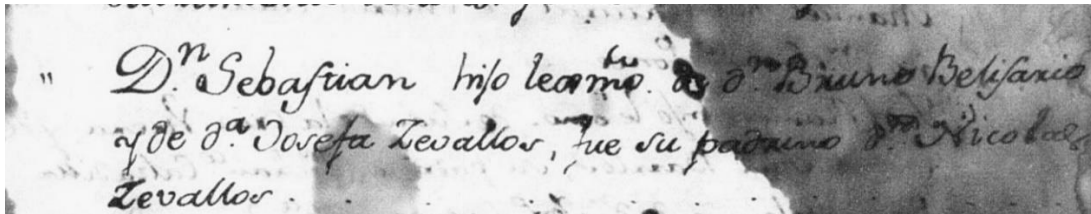 " D.ⁿ Sebastian hijo leg.mo de d.ⁿ Bruno Belisario
y de d.ª Josefa Zevallos, fue su padrino d.ⁿ Nicolas
Zevallos.